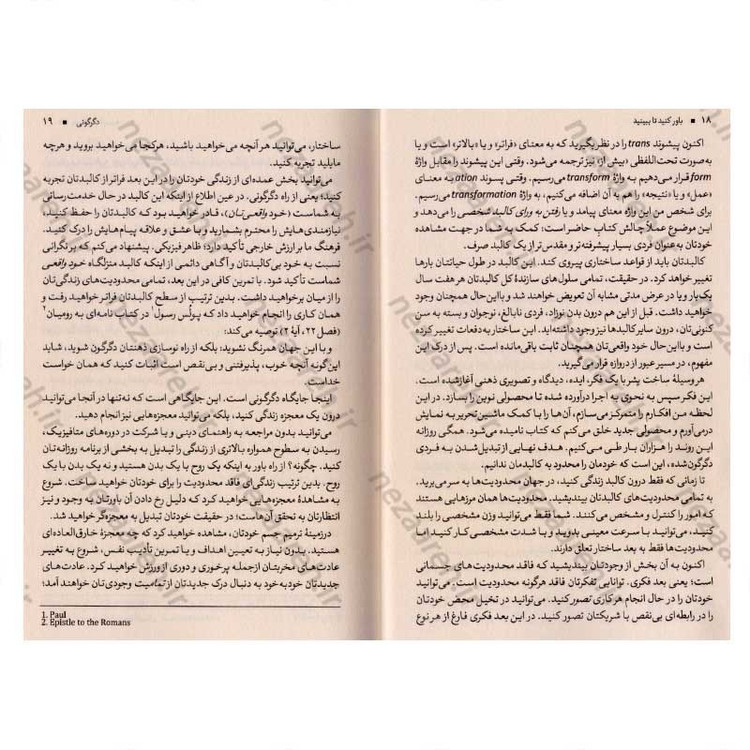 ۱۸ ■ باور کنید تا ببینید
اکنون پیشوند trans را در نظر بگیرید که به معنای «فراتر» و یا «بالاتر» است و یا
به‌صورت تحت‌اللفظی «بیش از» نیز ترجمه می‌شود. وقتی این پیشوند را مقابل واژهٔ
form قرار می‌دهیم به واژهٔ transform می‌رسیم. وقتی پسوند ation به معنای
«عمل» و یا «نتیجه» را هم به آن اضافه می‌کنیم، به واژهٔ transformation می‌رسیم.
برای شخص من این واژه معنای پیامد و یا رفتن به ورای کالبد شخصی را می‌دهد و
این موضوع عملاً چالش کتاب حاضر است: کمک به شما در جهت مشاهده
خودتان به‌عنوان فردی بسیار پیشرفته‌تر و مقدس‌تر از یک کالبد صرف.
کالبدتان باید از قواعد ساختاری پیروی کند. این کالبد در طول حیاتتان بارها
تغییر خواهد کرد. در حقیقت، تمامی سلول‌های سازندهٔ کل کالبدتان هر هفت سال
یک بار و یا در عرض مدتی مشابه آن تعویض خواهند شد و بااین‌حال همچنان وجود
خواهید داشت. قبل از این هم درون بدن نوزاد، فردی نابالغ، نوجوان و بسته به سن
کنونی‌تان، درون سایر کالبدها نیز وجود داشته‌اید. این ساختار به دفعات تغییر کرده
است و بااین‌حال خود واقعی‌تان همچنان ثابت باقی‌مانده است. پس از درک این
مفهوم، در مسیر عبور از دروازه قرار می‌گیرید.
هر وسیلهٔ ساخت بشر با یک فکر، ایده، دیدگاه و تصویری ذهنی آغازشده است.
این فکر سپس به نحوی به اجرا درآورده شده تا محصولی نوین را بسازد. در این
لحظه من افکارم را متمرکز می‌سازم، آن‌ها را با کمک ماشین‌تحریر به نمایش
درمی‌آورم و محصولی جدید خلق می‌کنم که کتاب نامیده می‌شود. همگی روزانه
این روند را هزاران بار طی می‌کنیم. هدف نهایی از تبدیل‌شدن به فردی
دگرگون‌شده، این است که خودمان را محدود به کالبدمان ندانیم.
تا زمانی که فقط درون کالبد زندگی کنید، در جهان محدودیت‌ها به سر می‌برید.
به تمامی محدودیت‌های کالبدتان بیندیشید. محدودیت‌ها همان مرزهایی هستند
که امور را کنترل و مشخص می‌کنند. شما فقط می‌توانید وزن مشخصی را بلند
کنید، می‌توانید با سرعت معینی بدوید و با شدت مشخصی کار کنید اما
محدودیت‌ها فقط به بعد ساختار تعلق دارند.
اکنون به آن بخش از وجودتان بیندیشید که فاقد محدودیت‌های جسمانی
است؛ یعنی بعد فکری. توانایی تفکرتان فاقد هرگونه محدودیت است. می‌توانید
خودتان را در حال انجام هر کاری تصور کنید. می‌توانید در تخیل محض خودتان
را در رابطه‌ای بی‌نقص با شریکتان تصور کنید. در این بعد فکری فارغ از هر نوع
دگرگونی ■ ۱۹
ساختار، می‌توانید هر آنچه می‌خواهید باشید، هرکجا می‌خواهید بروید و هرچه
مایلید تجربه کنید.
می‌توانید بخش عمده‌ای از زندگی خودتان را در این بعد فراتر از کالبدتان تجربه
کنید؛ یعنی از راه دگرگونی. در عین اطلاع از اینکه این کالبد در حال خدمت‌رسانی
به شماست (خود واقعی‌تان)، قادر خواهید بود که کالبدتان را حفظ کنید،
نیازمندی‌هایش را محترم بشمارید و با عشق و علاقه پیام‌هایش را درک کنید.
فرهنگ ما بر ارزش خارجی تأکید دارد؛ ظاهر فیزیکی. پیشنهاد می‌کنم که بر نگرانی
نسبت به خود بی‌کالبدتان و آگاهی دائمی از اینکه کالبد منزلگاه خود واقعی
شماست تأکید شود. با تمرین کافی در این بعد، تمامی محدودیت‌های زندگی‌تان
را از میان برخواهید داشت. بدین ترتیب از سطح کالبدتان فراتر خواهید رفت و
همان کاری را انجام خواهید داد که پولُس رسول۱ در کتاب نامه‌ای به رومیان۲
(فصل ۲۲، آیهٔ ۲) توصیه می‌کند:
و با این جهان همرنگ نشوید: بلکه از راه نوسازی ذهنتان دگرگون شوید، شاید
این‌گونه آنچه خوب، پذیرفتنی و بی‌نقص است اثبات کنید که همان خواست
خداست.
اینجا جایگاه دگرگونی است. این جایگاهی است که نه‌تنها در آنجا می‌توانید
درون یک معجزه زندگی کنید، بلکه می‌توانید معجزه‌هایی نیز انجام دهید.
می‌توانید بدون مراجعه به راهنمای دینی و یا شرکت در دوره‌های متافیزیک،
رسیدن به سطوح همواره بالاتری از زندگی را تبدیل به بخشی از برنامه روزانه‌تان
کنید. چگونه؟ از راه باور به اینکه یک روح با یک بدن هستید و نه یک بدن با یک
روح. بدین ترتیب زندگی‌ای فاقد محدودیت را برای خودتان خواهید ساخت. شروع
به مشاهدهٔ معجزه‌هایی خواهید کرد که دلیل رخ دادن آن باورتان به وجود و نیز
انتظارتان به تحقق آن‌هاست؛ در حقیقت خودتان تبدیل به معجزه‌گر خواهید شد.
درزمینهٔ ترمیم جسم خودتان، مشاهده خواهید کرد که چه معجزهٔ خارق‌العاده‌ای
هستید. بدون نیاز به تعیین اهداف و یا تمرین تأدیب نفس، شروع به تغییر
عادت‌های مخربتان ازجمله پرخوری و دوری از ورزش خواهید کرد. عادت‌های
جدیدتان خودبه‌خود به دنبال درک جدیدتان از تمامیت وجودی‌تان خواهند آمد؛
1. Paul
2. Epistle to the Romans
nezareh.ir